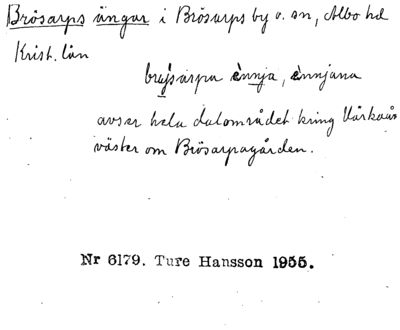 Brösarps ängar i Brösarps by o. sn, Albo hd
Krist. län
brøsarpa ènnja, ènnjana
avser hela dalområdet kring Verkaån
väster om Brösarpagården.
Nr 6179. Ture Hansson 1955.